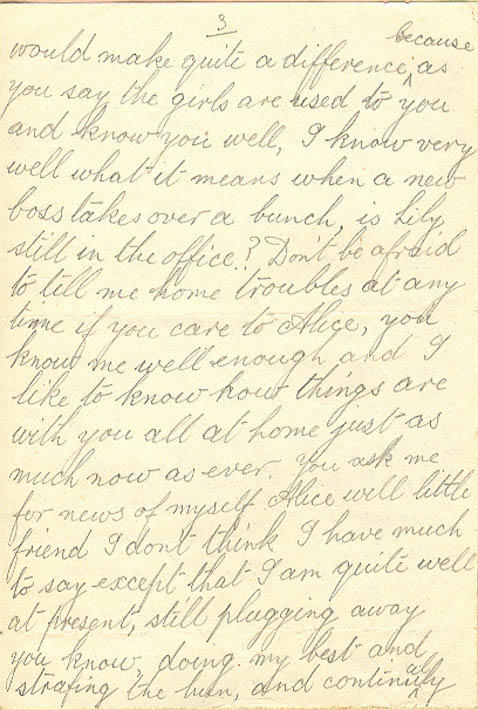 3
because
would make quite a difference, as
you say the girls are used to you
and know you well, I know very
well what it means when a new
boss takes over a bunch, is Lily
still in the office? Don't be afraid
to tell me home troubles at any
time if you care to Alice, you
know me well enough and I
like to know how things are
with you all at home just as
much now as ever. You ask me
for news of myself Alice well little
friend I don't think I have much
to say except that I am quite well
at present, still plugging away
you know, doing my best and
strafing the hun, and continually